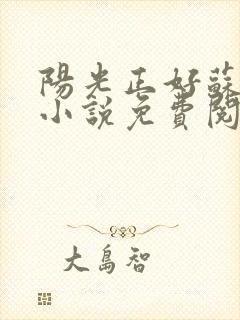 陽光正好蘇
小說免費閱
大島智